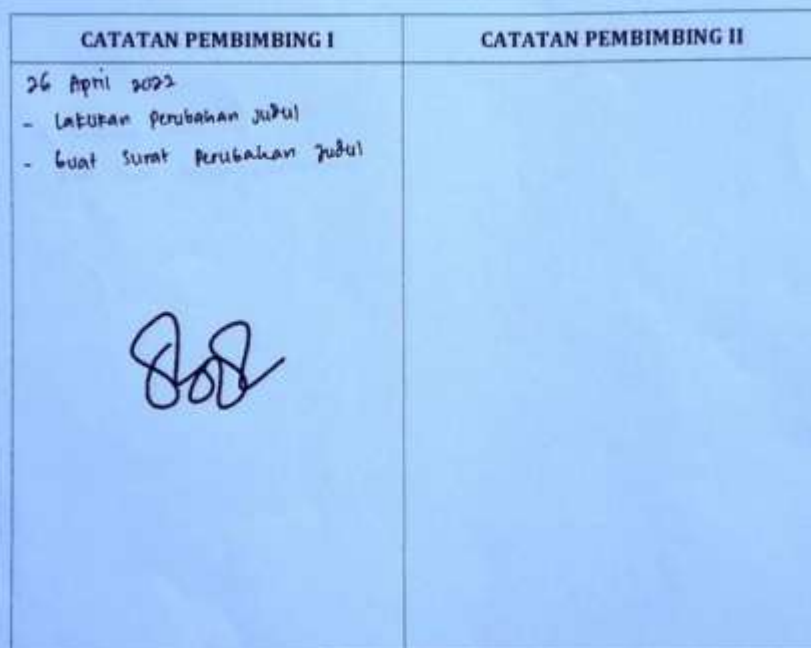 CATATAN PEMBIMBING I
CATATAN PEMBIMBING II
26 April 2022
- Lakukan Perubahan Judul
- Buat Surat Perubahan Judul